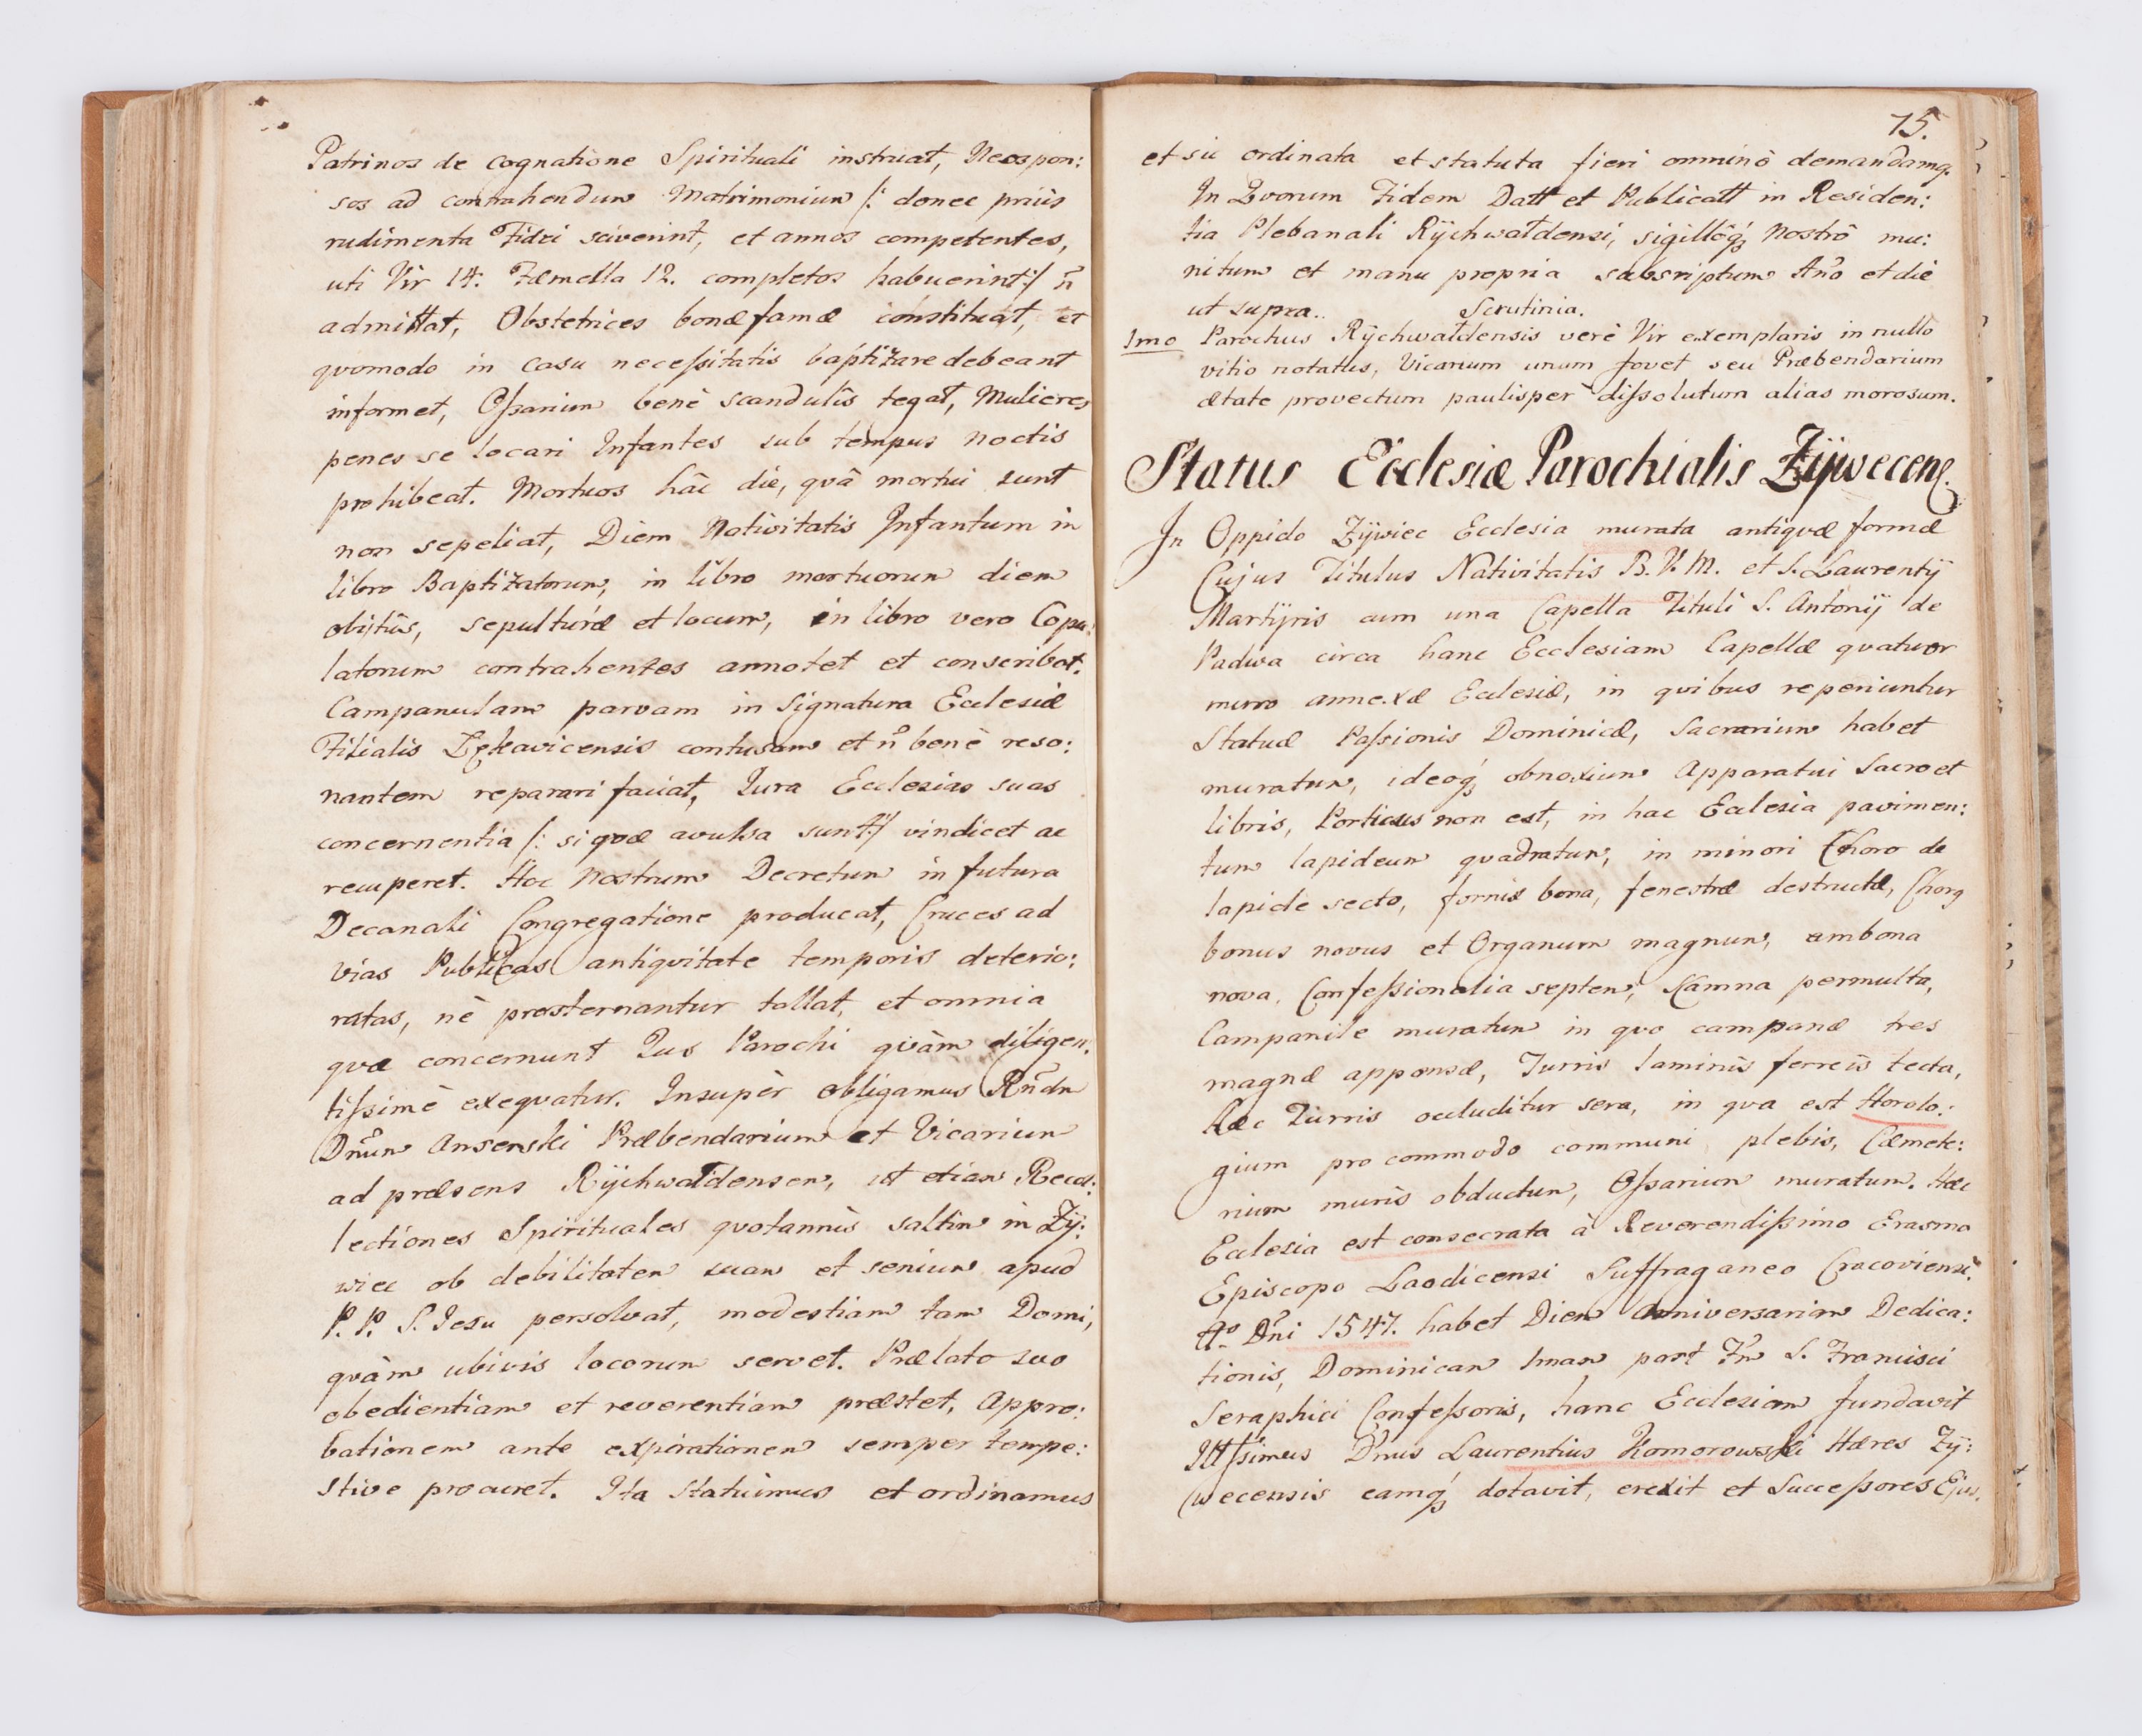 Patrinos de cognatione Spirituali instruat, Neospon:
sos ad contrahendum Matrimonium /: donec prius
rudimenta Fidei sciverint, et annos competentes,
uti Vir 14. Fæmella 12. completos habuerint :/ ñ
admittat, Obstetrices bonæ famæ constituat, et
qvomodo in casu necessitatis baptizare debeant
informet, Ossarium benè scandulis tegat, Mulieres
penes se locari Infantes sub tempus noctis
prohibeat. Mortuos hâc die, qvâ mortui sunt
non sepeliat, Diem Nativitatis Infantum in
libro Baptizatorum, in libro mortuorum diem
obitûs, sepulturæ et locum, in libro vero Copu:
latorum contrahentes annotet et conscribat.
Campanulam parvam in Signatura Ecclesiæ
Filialis contusam et ñ benè reso:
nantem reparari faciat, Iura Ecclesias suas
concernentia /: si qvæ avulsa sunt :/ vindicet ac
recuperet. Hoc Nostrum Decretum in futura
Decanali Congregatione producat, Cruces ad
vias Publicas antiqvitate temporis deterio:
ratas, nè prosternantur tollat, et omnia
qvæ concernunt Ius Parochi qvàm diligen:
tissimè exeqvatur. Insupèr obligamus Rñdm
Dnũm Ansenski Præbendarium et Vicarium
ad præsens Rÿchwałdensem, ut etiam Recol:
lectiones Spirituales qvotannis saltim in Zÿ:
wiec ob debilitatem suam et senium apud
P. P. S. Iesu persolvat, modestiam tam Domi,
qvàm ubivis locorum servet. Prælato suo
obedientiam et reverentiam præstet, Appro:
bationem ante expirationem semper tempe:
stive procuret. Ita Statuimus et ordinamus
75.
et sic ordinata et statuta fieri omninò demandamq.
In Qvorum Fidem Datt et Publicatt in Residen:
tia Plebanali Rÿchwałdensi, sigillôq́ Nostrô mu:
nitum et manu propria subscriptum Año et die
ut supra.. Scrutinia.
1mo Parochus Rÿchwałdensis verè Vir exemplaris in nullo
vitio notatus, Vicarium unum fovet seu Præbendarium
ætate provectum paulispèr dissolutum alias morosum.
Status Ecclesiæ Parochialis Zÿwecens.
In Oppido Zÿwiec Ecclesia murata antiqvæ formæ
Cujus Titulus Nativitatis B. V. M. et S. Laurentÿ
Martÿris cum una Capella Tituli S. Antonÿ de
Padwa circa hanc Ecclesiam Capellæ qvatuor
muro annexæ Ecclesiæ, in qvibus reperiuntur
Statuæ Passionis Dominicæ, Sacrarium habet
muratum, ideoq́ obnoxium Apparatui Sacro et
libris, Porticus non est, in hac Ecclesia pavimen:
tum lapideum qvadratum, in minori Choro de
lapide secto, fornix bona, fenestræ destructæ, Chorq
bonus novus et Organum magnum, ambona
nova, Confessionalia septem, Scamna permulta,
Campanile muratum in qvo campanæ tres
magnæ apponsæ, Turris laminis ferreis tecta,
Hæc Turris occluditur sera, in qva est Horolo:
gium pro commodo communi plebis, Cæmete:
rium muris obductum, Ossarium muratum. Hæc
Ecclesia est consecrata à Reverendissimo Erasmo
Episcopo Laodicensi Suffraganeo Cracoviensi.
Aº Dñi 1547. habet Diem Anniversariam Dedica:
tionis, Dominicam 1mam post Fm S. Francisci
Seraphici Confessoris, hanc Ecclesiam fundavit
Illssimus Dnus Laurentius Komorowski Hæres Zÿ:
wecensis eamq́ dotavit, erexit et Successores Ejus.